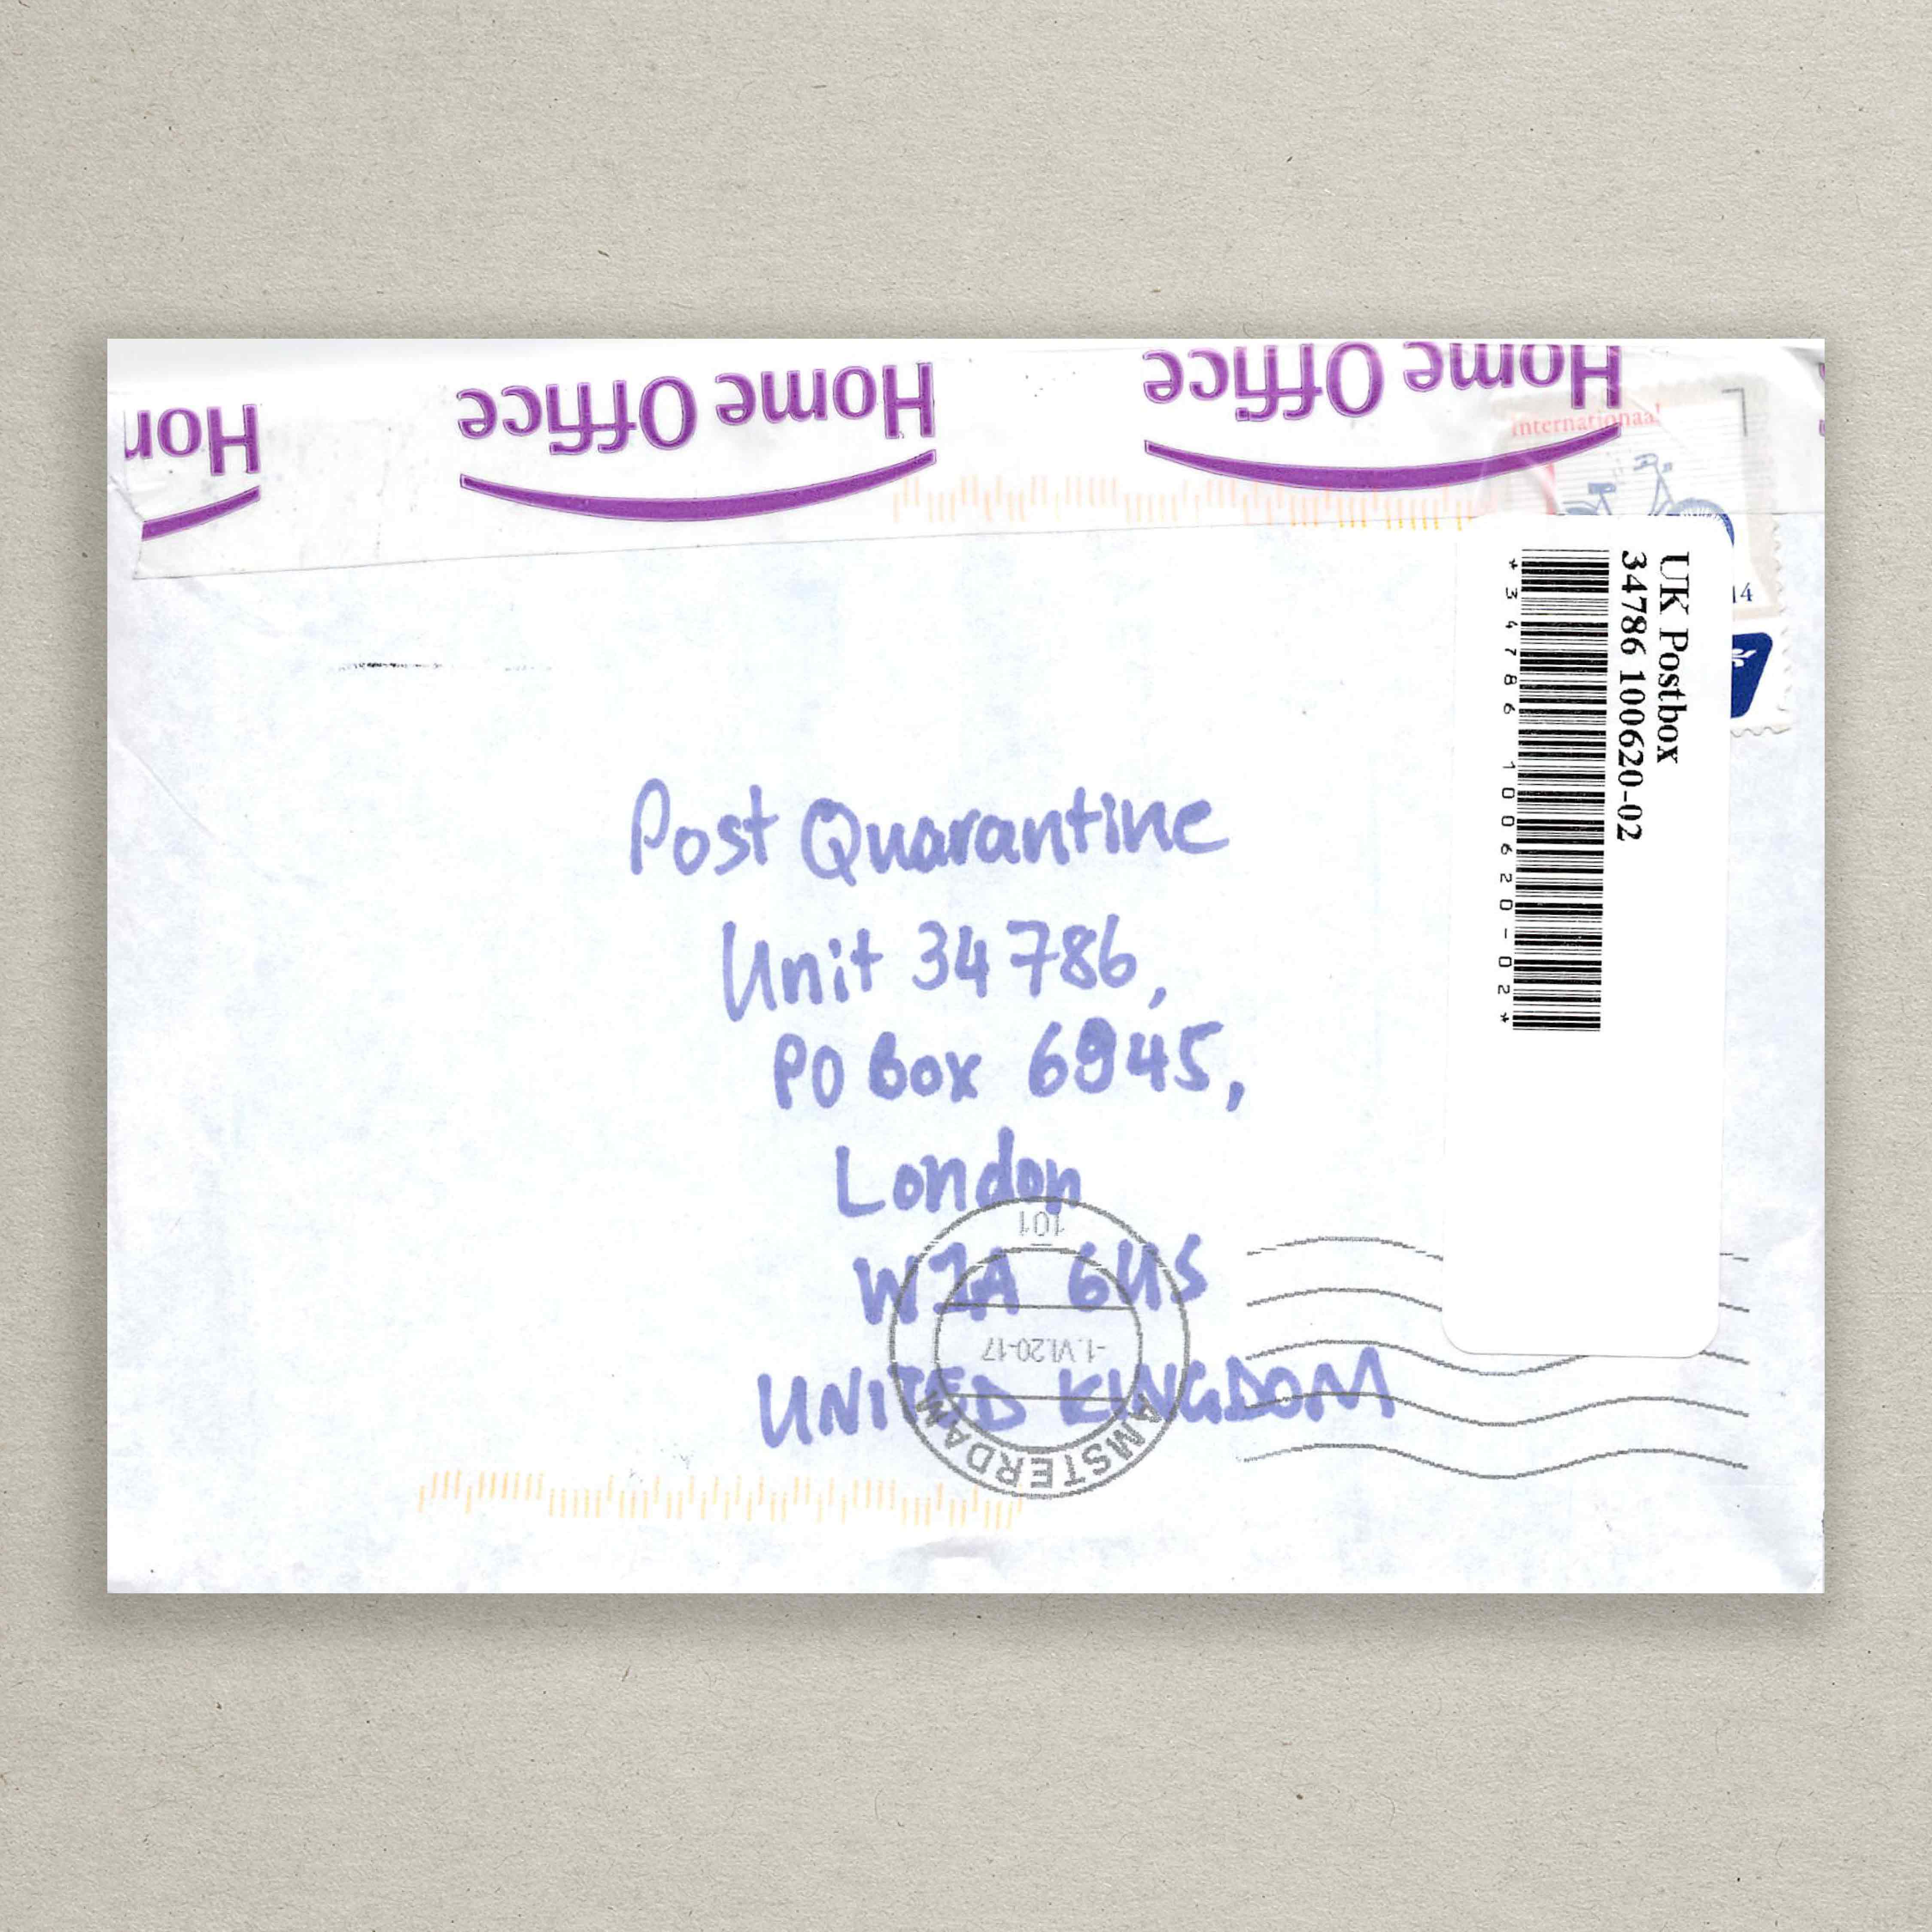 Hom
Home Office
Home Office
internationaal
14
UK Postbox
34786 100620-02
*34786 100620-02*
Post Quarantine
Unit 34786,
PO Box 6945,
London
W1A 6US
UNITED KINGDOM
101
-1.VI.20-17
AMSTERDAM